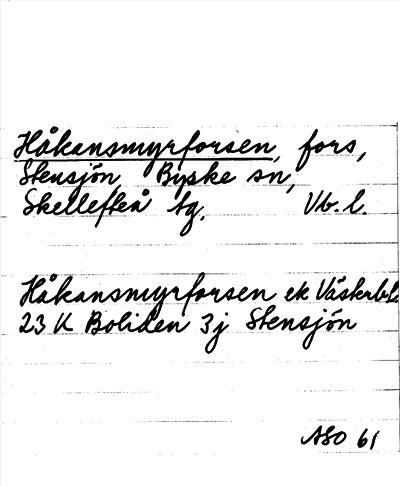 Håkansmyrforsen, fors,
Stensjön Byske sn,
Skellefteå tg. Vb. l.
Håkansmyrforsen ek Västerb.l.
23 K Boliden 3j Stensjön
ASO 61